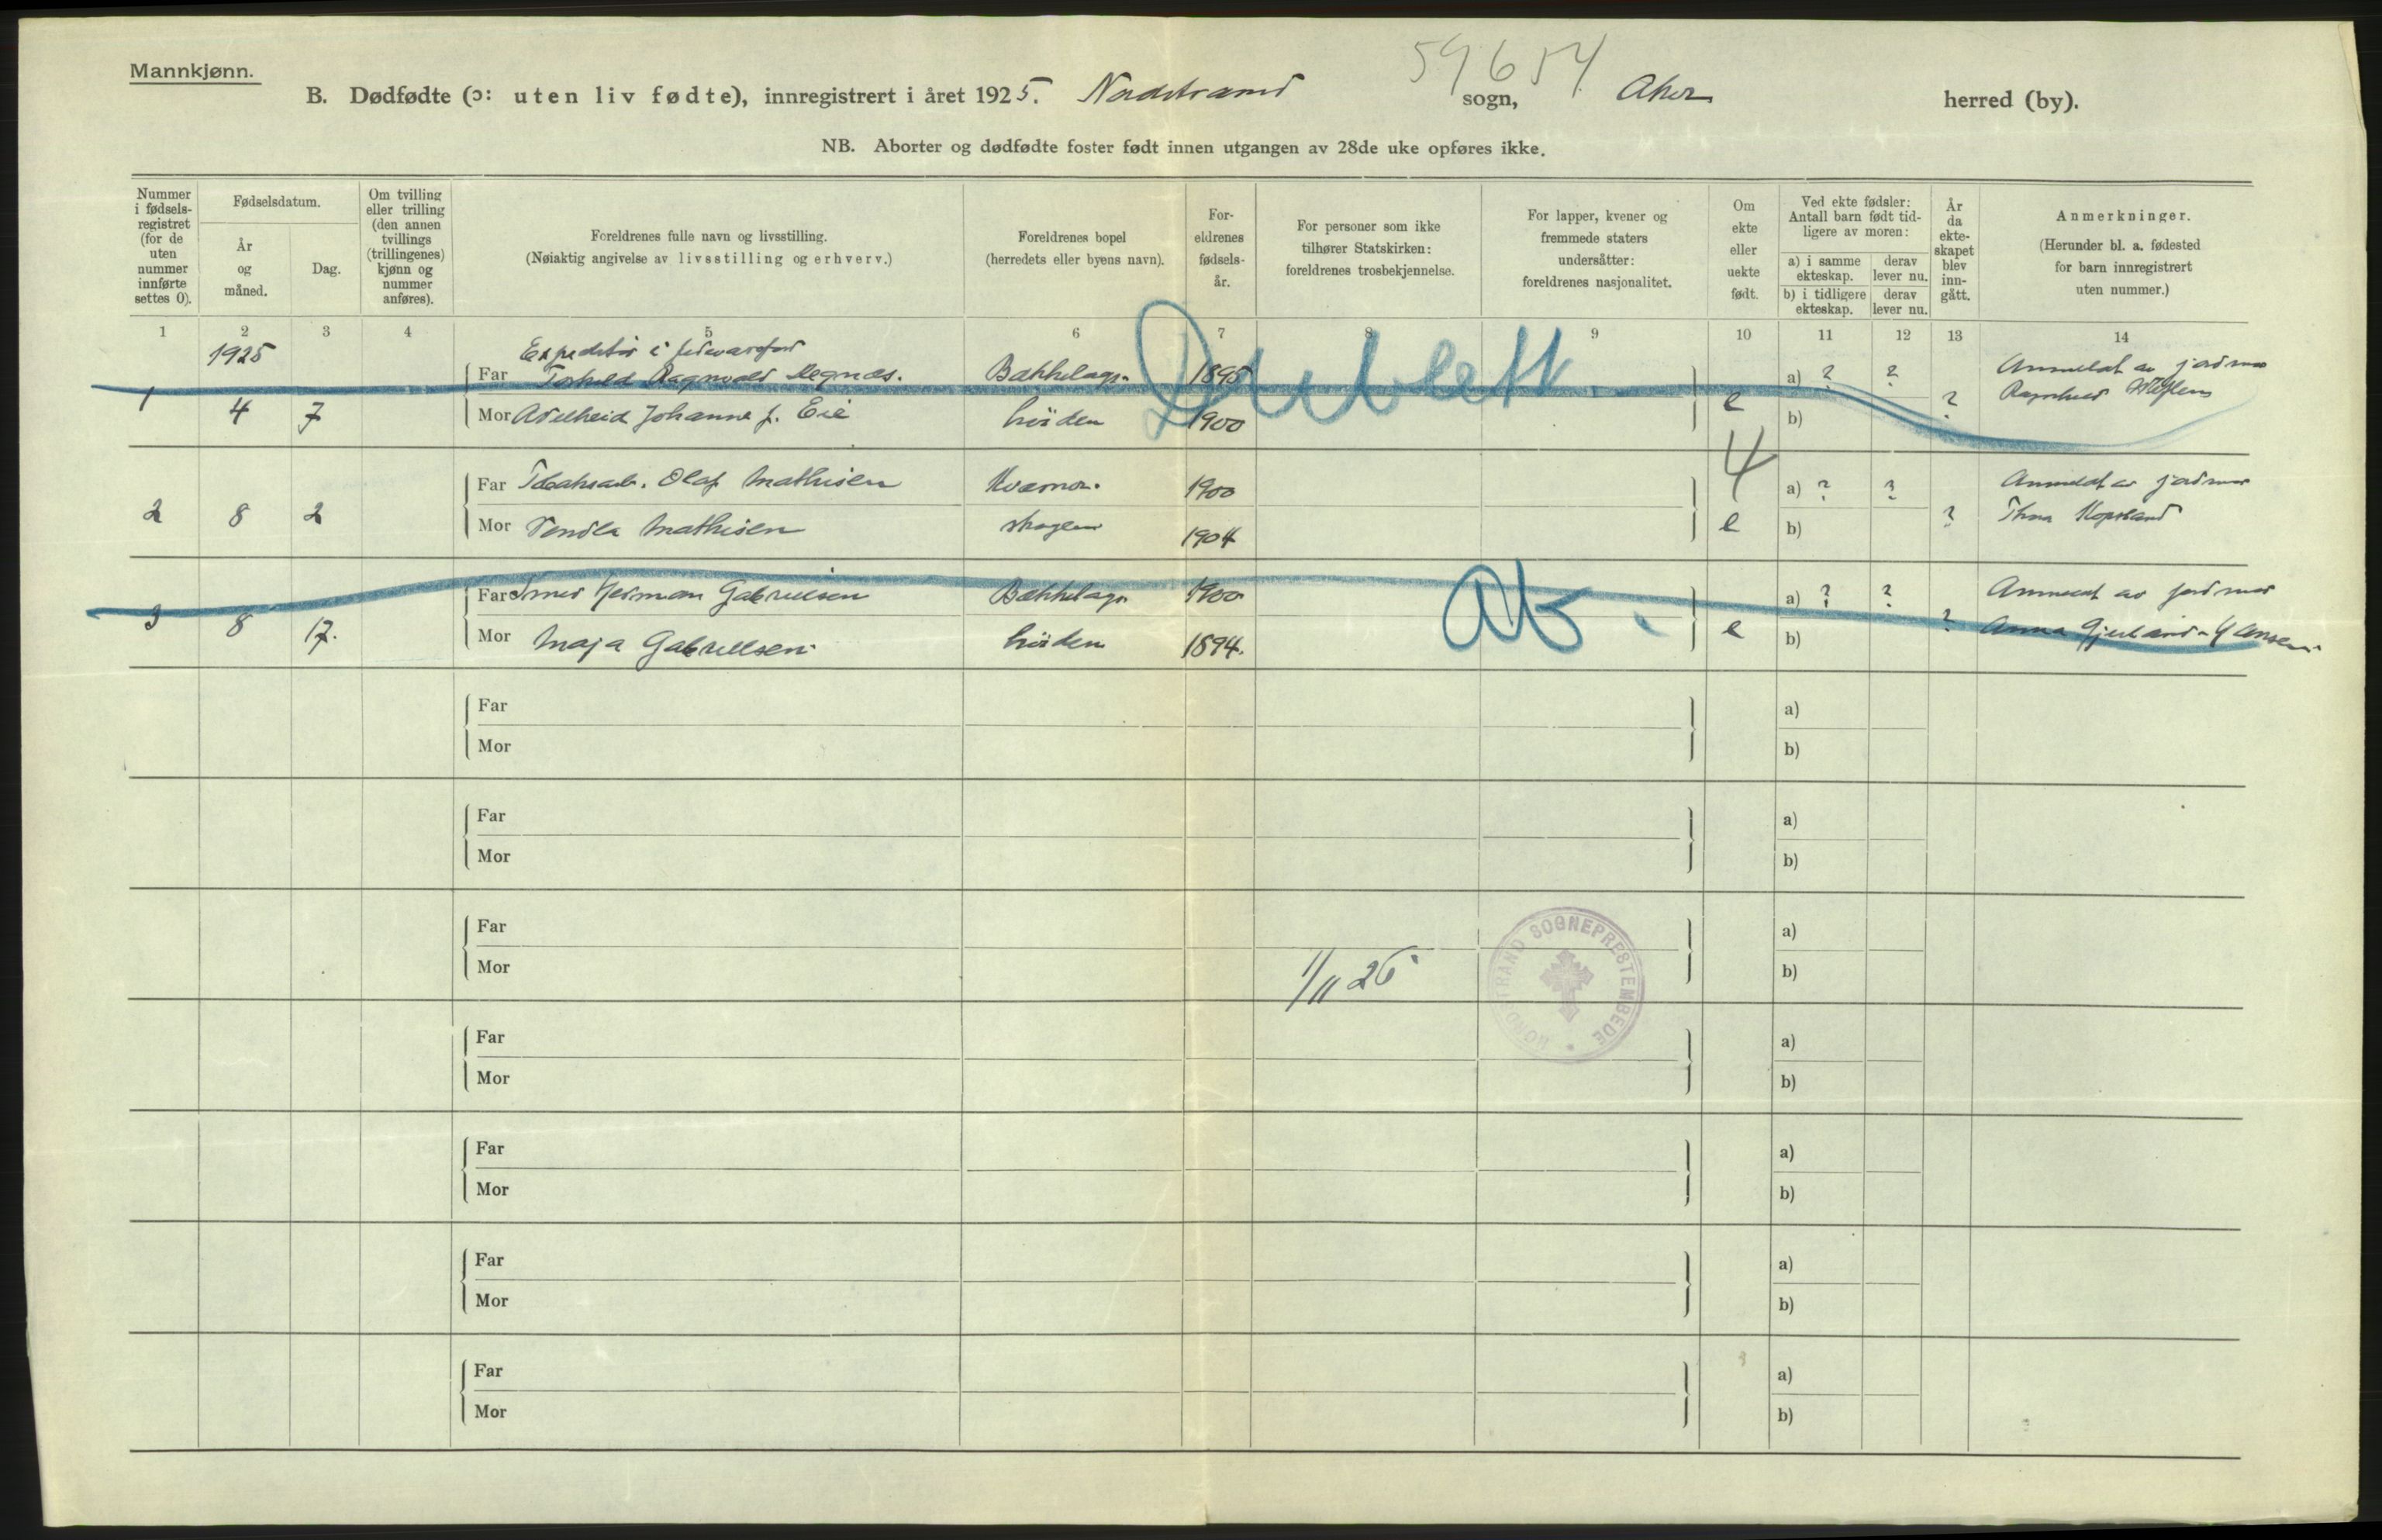 Mannkjønn.
59654
B. Dødfødte (ɔ: uten liv fødte), innregistrert i året 1925. Nordstrand sogn, Aker herred (by).
NB. Aborter og dødfødte foster født innen utgangen av 28de uke opføres ikke.
Nummer i fødselsregistret (for de uten nummer innførte settes 0).
Fødselsdatum.
År og måned.
Dag.
Om tvilling eller trilling (den annen tvillings (trillingenes) kjønn og nummer anføres).
Foreldrenes fulle navn og livsstilling.
(Nøiaktig angivelse av livsstilling og erhverv.)
Foreldrenes bopel
(herredets eller byens navn).
Foreldrenes fødselsår.
For personer som ikke tilhører Statskirken: foreldrenes trosbekjennelse.
For lapper, kvener og fremmede staters undersåtter: foreldrenes nasjonalitet.
Om ekte eller uekte født.
Ved ekte fødsler: Antall barn født tidligere av moren:
a) i samme ekteskap.
derav lever nu.
b) i tidligere ekteskap.
derav lever nu.
År da ekteskapet blev inngått.
Anmerkninger.
(Herunder bl. a. fødested for barn innregistrert uten nummer.)
1 2 3 4 5 6 7 8 9 10 11 12 13 14
1925
Expeditør i
Far Ragnvald Bækkelags- 1895 a) ? ? Anmeldt av jordmor
Dublett.
1 4 7 Mor Adelheid Johanne f. Eie höiden 1900 e b) ? Ragnhild
4
Far Olaf Mathisen Kværner- 1900 a) ? ? Anmeldt av jordmor
2 8 2 Mor Vendla Mathisen skogen 1904 e b) ? Thora Kopstad
Far Herman Gabrielsen Bækkelags 1900 a) ? ? Anmeldt av jordmor
Ab.
3 8 17. Mor Maja Gabrielsen höiden 1894. e b) ? Anna Gjerland-Hansen
Far a)
Mor b)
Far a)
Mor b)
Far a)
Mor b)
1/11 25
NORDSTRAND SOGNEPRESTEMBEDE
Far a)
Mor b)
Far a)
Mor b)
Far a)
Mor b)
Far a)
Mor b)